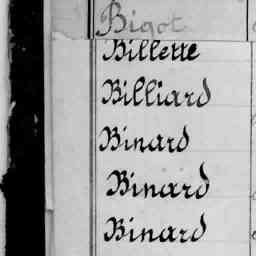 Bigot
Billette
Billiard
Binard
Binard
Binard